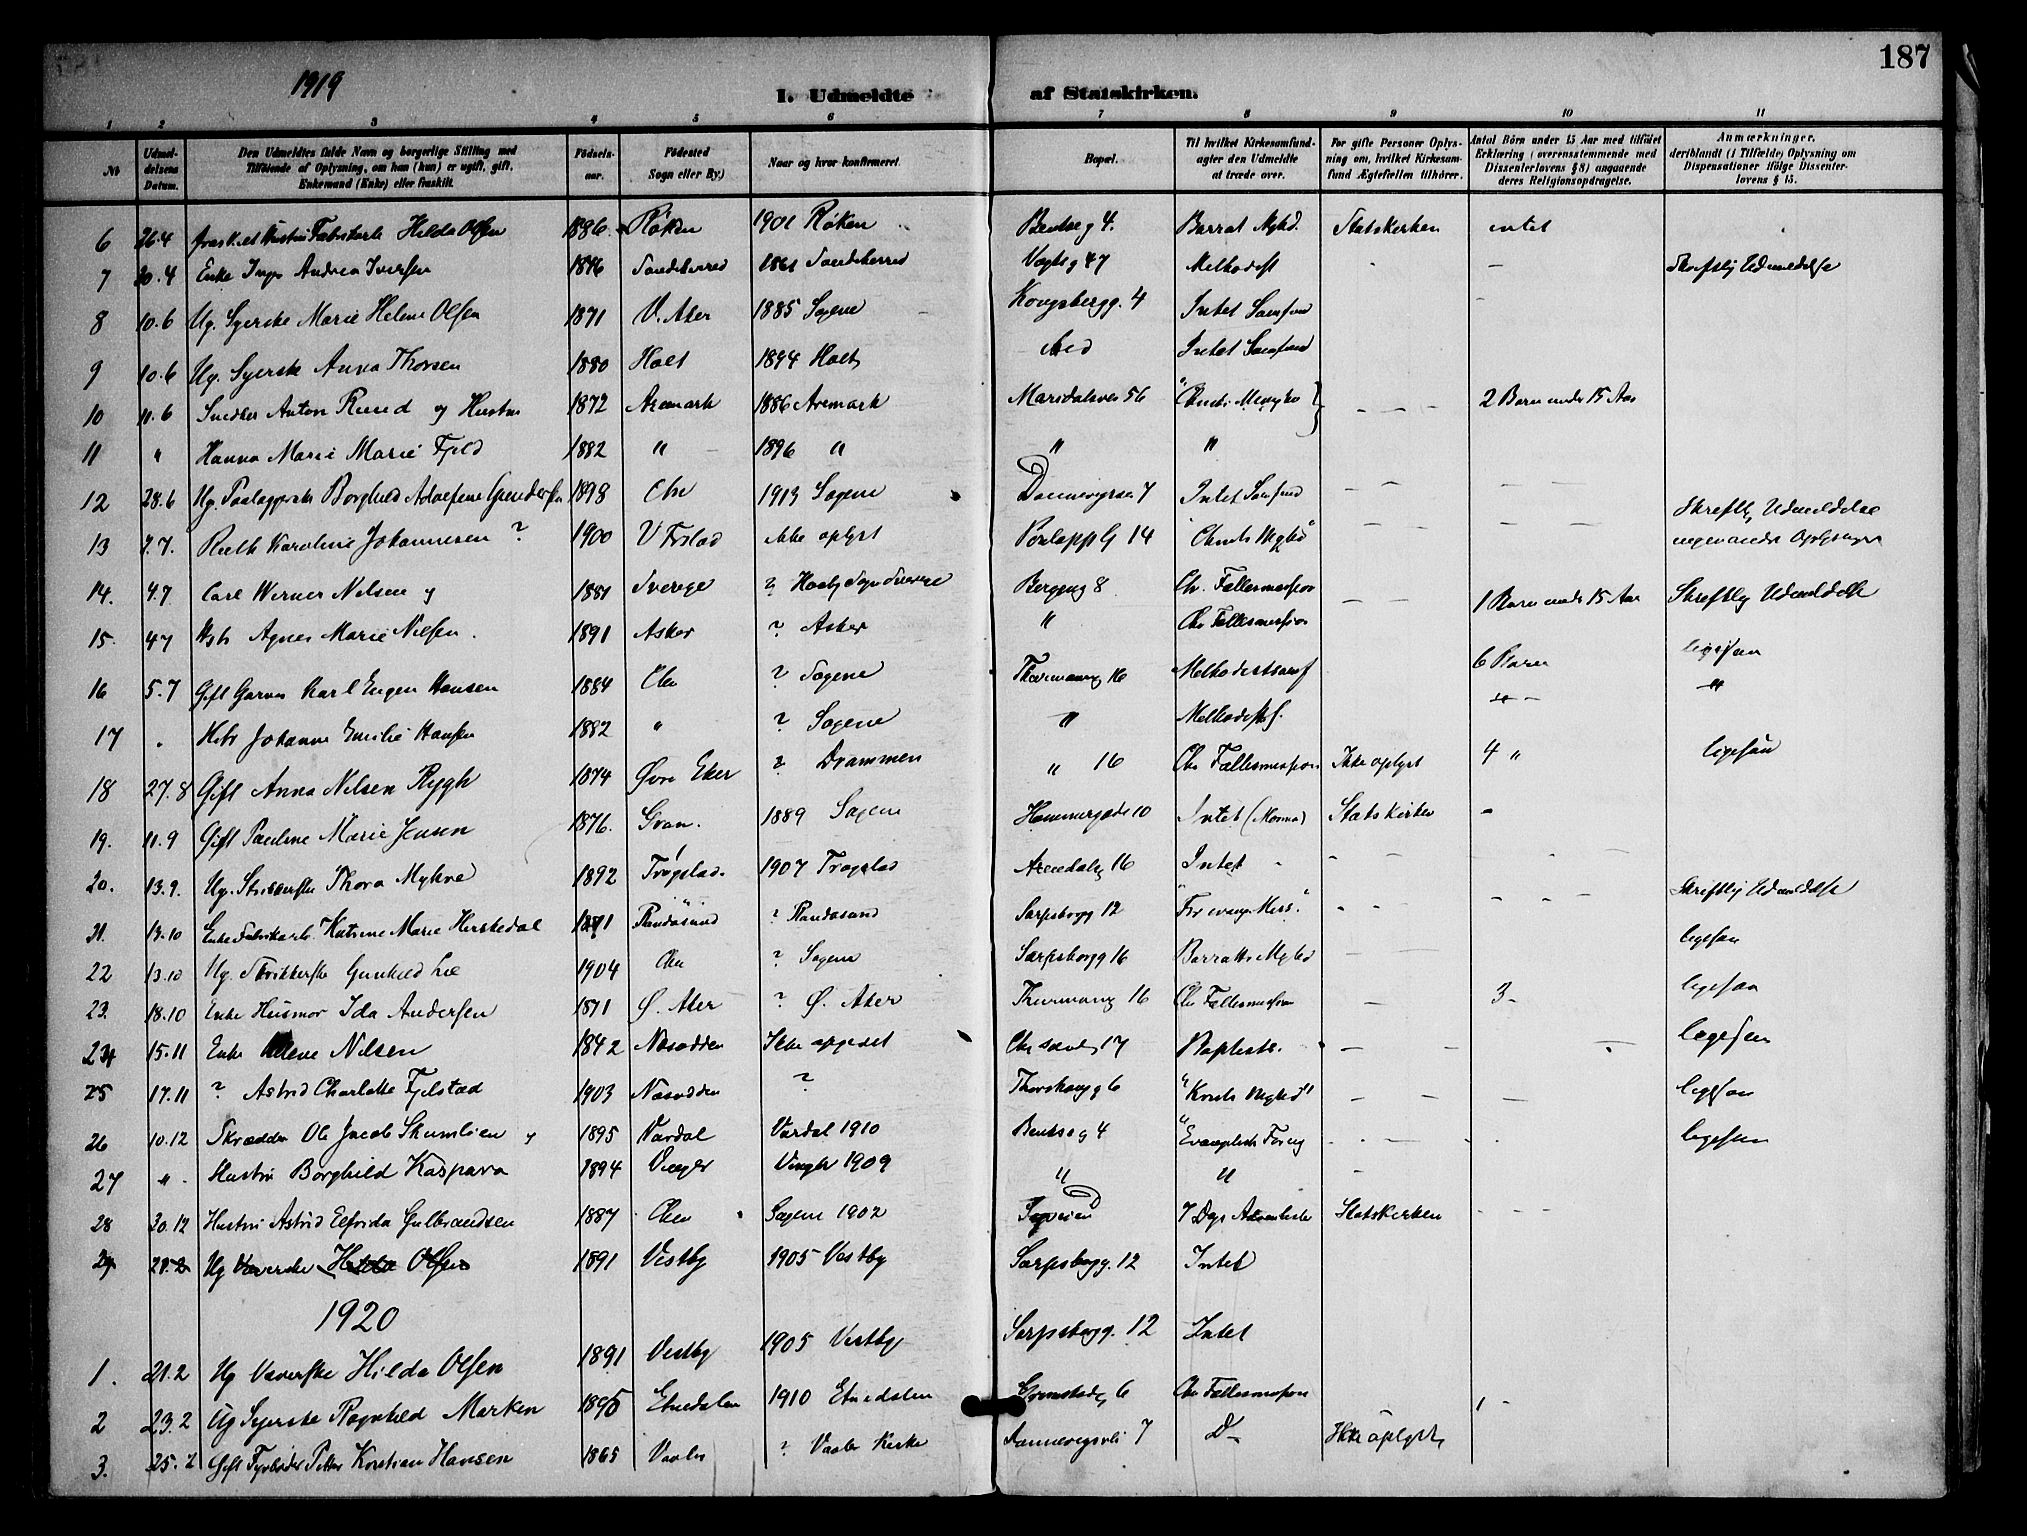 187
1919
I. Udmeldte af Statskirken.
1 2 3 4 5 6 7 8 9 10 11
№ Udmeldelsens Datum. Den Udmeldtes fulde Navn og borgerlige Stilling med Tilföiende af Oplysning, om han (hun) er ugift, gift, Enkemand (Enke) eller fraskilt. Födselsaar. Födested Sogn eller By.) Naar og hvor konfirmeret. Bopæl. Til hvilket Kirkesamfund agter den Udmeldte at træde over. For gifte Personer Oplysning om, hvilket Kirkesamfund Ægtefællen tilhörer. Antal Börn under 15 Aar med tilföiet Erklæring (overensstemmende med Dissenterlovens § 8) angaaende deres Religionsopdragelse. Anmærkninger, deriblandt (i Tilfælde) Oplysning om Dispensationer ifölge Dissenterlovens § 15.
6 26.4 Fabrikarb Hilda Olsen 1886 Røken 1901 Røken Bentseg 4. Barrat Mghd. Statskirken intet
7 20.4 Enke Inga Andrea Iversen 1846 Sandeherred 1861 Sandeherred Vogtsg 47 Methodist — Skriftlig Udmeldelse
8 10.6 Ug. Syerske Marie Helene Olsen 1871 V. Aker 1885 Sagene Kongsbergg. 4 Intet Samfund
9 10.6 Ug. Syerske Anna Thorsen 1880 Holt 1894 Holt Intet Samfund
10 11.6 Snedker Anton Ruud og Hustru 1872 Aremark 1886 Aremark Maridalsvei 56 2 Barn under 15 Aar
11 " Hanna Marie Marie Fjeld 1882 " 1896 " " "
12 28.6 Ug. Borghild 1898 Chr 1913 Sagene Dannevigsvei 7 Intet Samfund
13 7.7. Ruth Karoline Johannesen ? 1900 ikke oplyst 14 Skriftlig Udmeldelse
14. 4.7 Carl Werner Nilsen og 1881 Sverige ? Berggug 8 Chr. Fællesmission 1 Barn under 15 Aar Skriftlig Udmeldelse
15. 4.7 Agnes Marie Nilsen. 1891 Asker ? Asker " Chr Fællesmission
16 5.7 Gift Karl Eugen Hansen 1884 Chr ? Sagene Thurmanng 16 Methodistsamf 6 Barn ligesaa
17 " Johanne Emilie Hansen 1882 " ? Sagene " Methodistsf. "
18 27.8 Gift Anna Nilsen Rygh 1874 Øvre Eker ? Drammen " 16 Chr Fællesmission Ikke oplyst 4 " ligesaa
19. 11.9 Gift Pauline Marie Jensen 1876. Gran. 1889 Sagene Hammergade 10 Intet Statskirken —
20. 13.9. Ug. Thora Myhre 1892 Trøgstad. 1907 Trøgstad Arendalsg 16 Intet
21. 13.10 Enke Fabrikarb. Katrine Marie Herstedal Randøsund ? Randøsund Sarpsborgg 12 Skriftlig Udmeldelse
22 13.10 Ug. Strikkerske Gunhild Lie 1904 Chr ? Sagene Sarpsborgg 16 Barratts Mghd ligesaa
23. 18.10 Enke Husmor Ida Andersen 1871 Ø. Aker ? Ø. Aker Thurmanng 16 Chr Fællesmission — 3 — ligesaa
24 15.11 Enke Nilsen 1842 Næsodden Ikke opgivet 17 Baptist. ligesaa
25 17.11 ? Astrid Charlotte Fjelstad 1903 Næsodden ? 6 ligesaa
26 10.12 Skrædder Ole Jacob Skumlien og 1895 Vardal Vardal 1910 Bentseg 4 ligesaa
27 " Hustru Borghild Kaspara 1894 Vinger Vinger 1909 " "
28 20.12 Hustru Astrid Elfrida Gulbrandsen 1887 Chr Sagene 1902 7 Dags Statskirken
29 21.2 Ug Væverske Hilda Olsen 1891 Vestby 1905 Vestby Sarpsborgg. 12 Intet
1920
1. 21.2 Ug Væverske Hilda Olsen 1891 Vestby 1905 Vestby Sarpsborgg. 12 Intet
2 23.2 Ug Syerske Ragnhild Marken 1895 Etnedalen 1910 Etnedalen Grimstadg 6 Chr Fællesmission
3. 25.2 Gift Fyrbøder Petter Kristian Hansen 1865 Vaaler ? Vaaler Kirke Dannevigsvei 7 D— Ikke oplyst